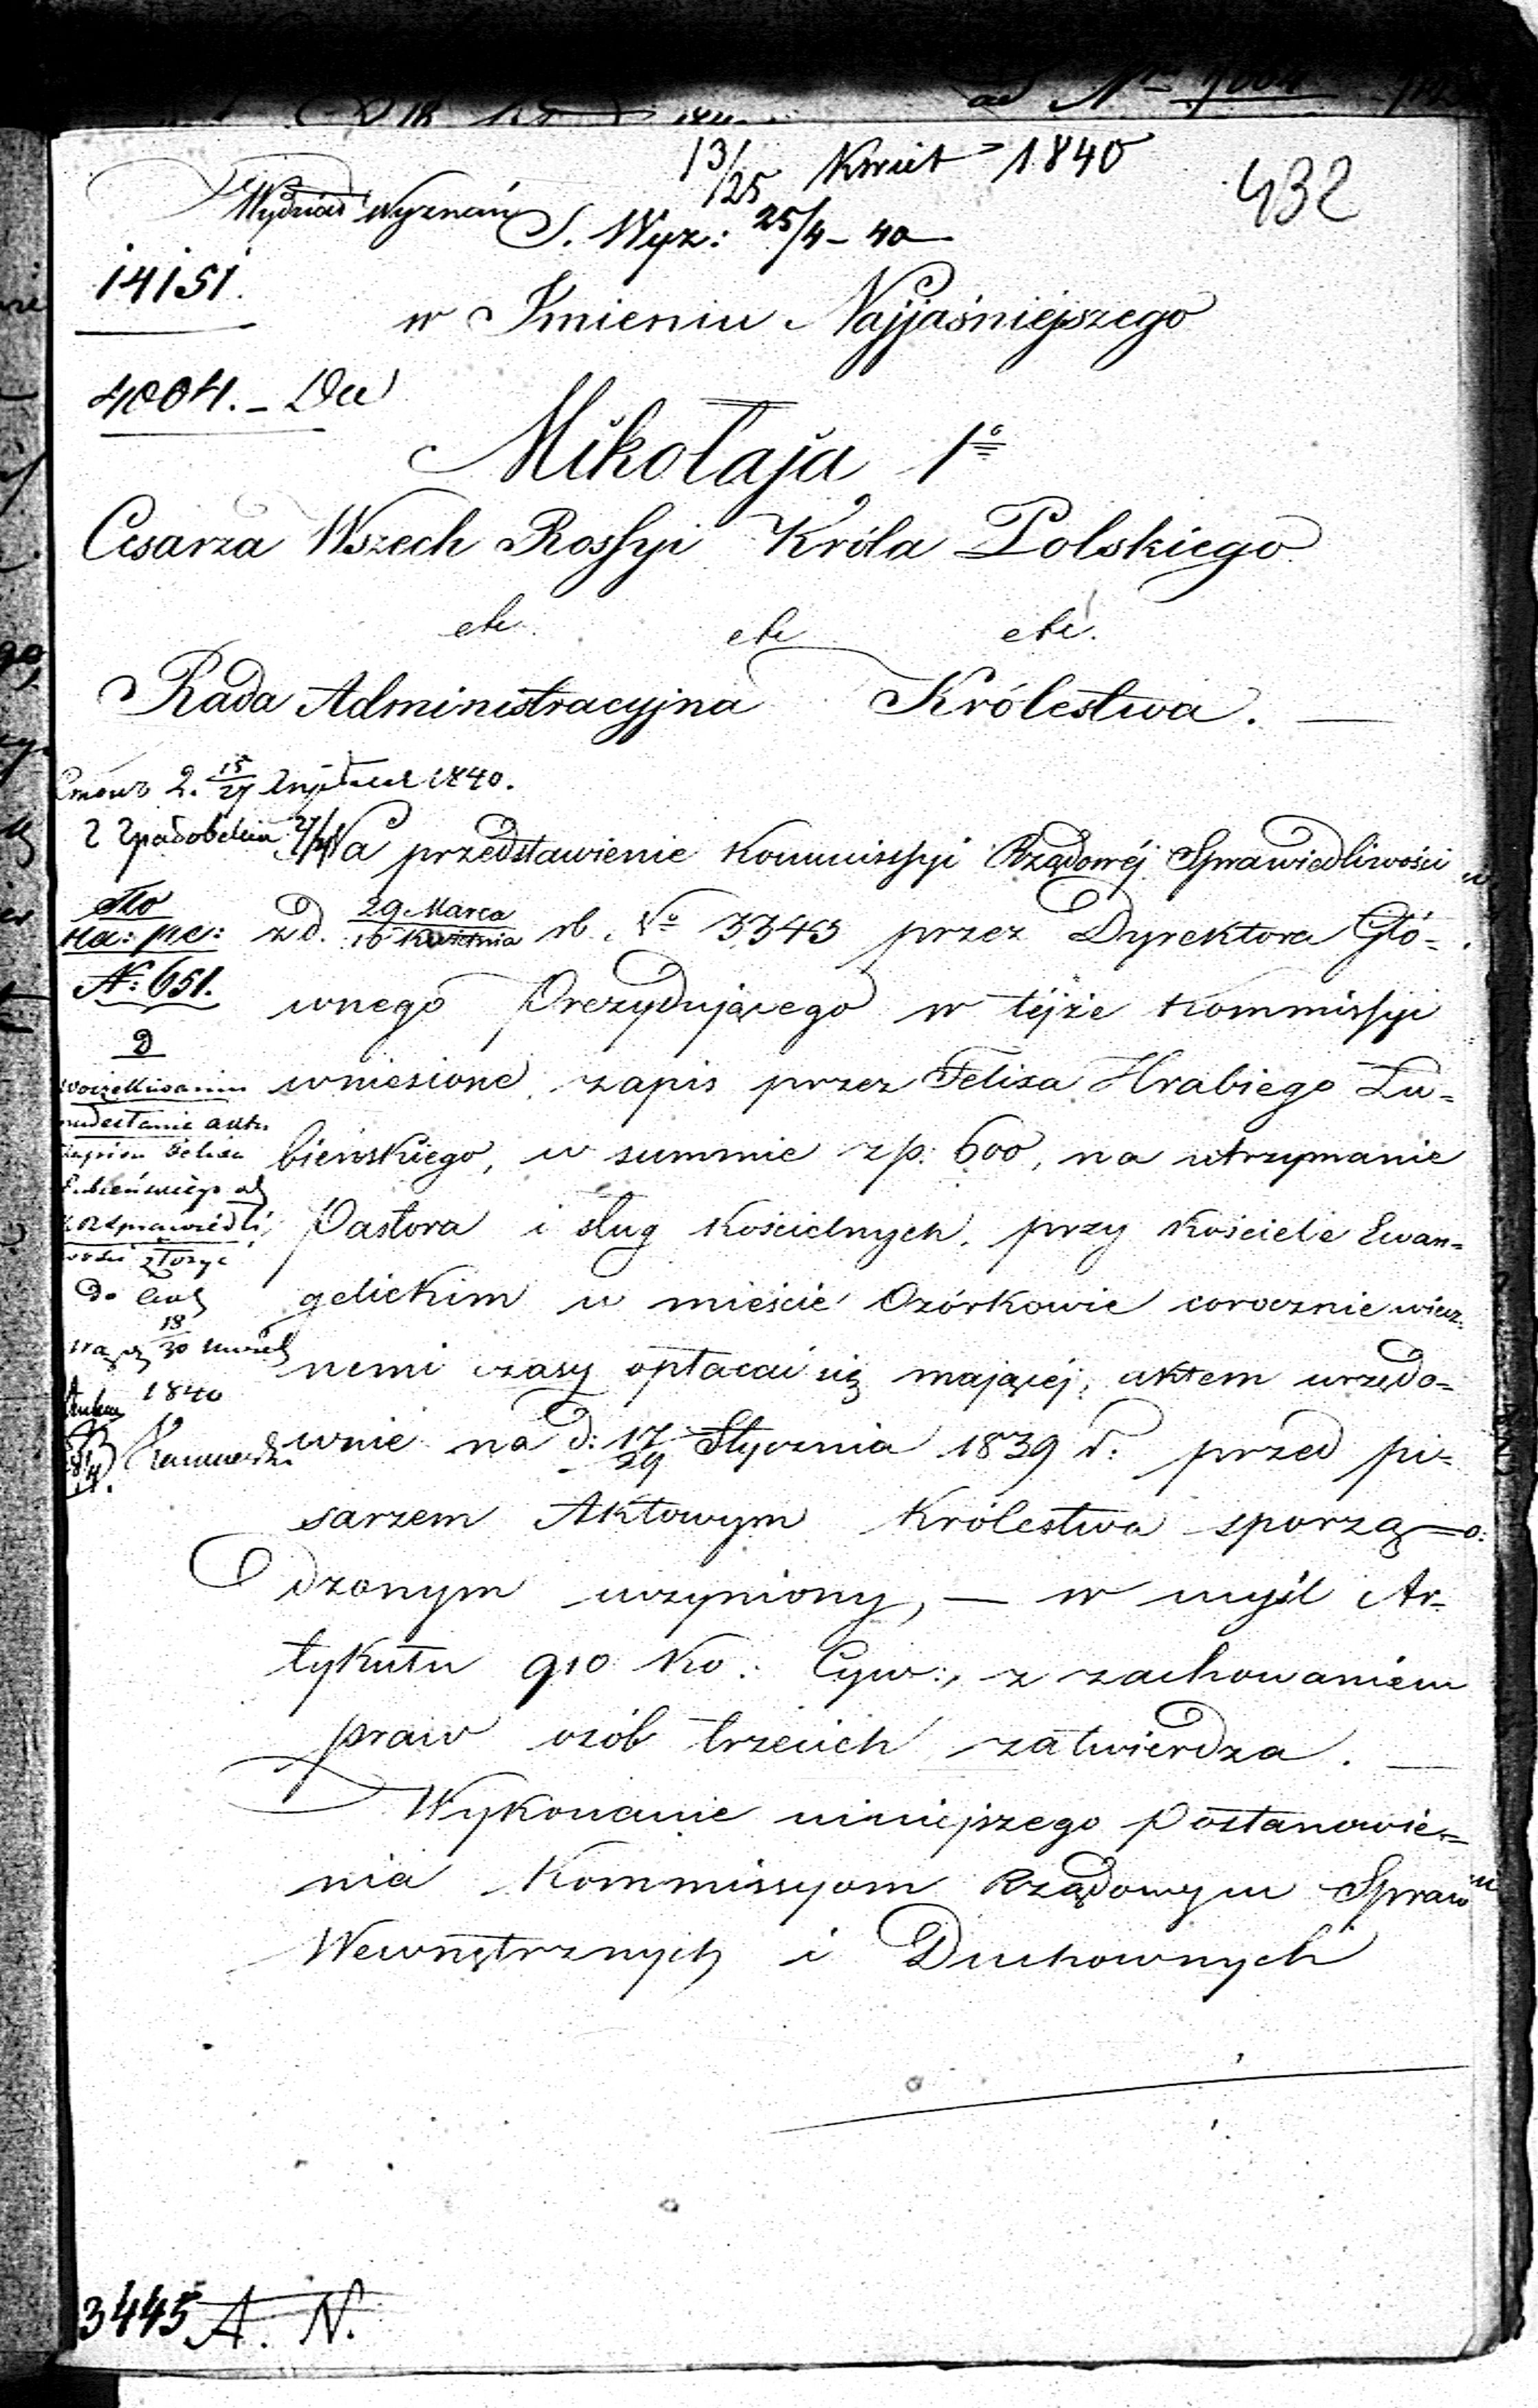 13/25 Kwiet 1840
432
Wydział Wyznań S. Wyz: 25/4 – 40
14151.
w Imieniu Najjaśniejszego
4004. –
Mikołaja 1o
Cesarza Wszech Rossyi Króla Polskiego
etc. etc etc.
Rada Administracyjna Królestwa. —
2. 15/27 1840.
Na przedstawienie Kommissyi Rządowéj Sprawiedliwości
z d. 29 Marca / 10 Kwietnia rb. No 3343 przez Dyrektora Głó=
wnego Prezydującego w téjże Kommissyi
wniesione, zapis przez Felixa Hrabiego Łu=
bieńskiego, w summie zp: 600, na utrzymanie
Pastora i sług Kościelnych, przy Kościele Ewan=
gelickim w mieście Ozórkowie corocznie wiecz=
nemi czasy opłacać się mającéj, aktem urzędo=
wnie na d: 17/29 Stycznia 1839 r: przed pi=
sarzem Aktowym Królestwa sporzą=
dzonym uczyniony, — w myśl Ar=
tykułu 910 Ko: Cyw:, z zachowaniem
praw osób trzecich zatwierdza. —
Wykonanie niniejszego Postanowie=
nia Kommissyom Rządowym Spraw
Wewnętrznych i Duchownych
na: pe:
N: 651.
D
nadesłanie aktu
zapisu Felixa
Łubieńskiego od
sprawiedli
wości złożyć
do akt
18/30
1840
3445 A. N.